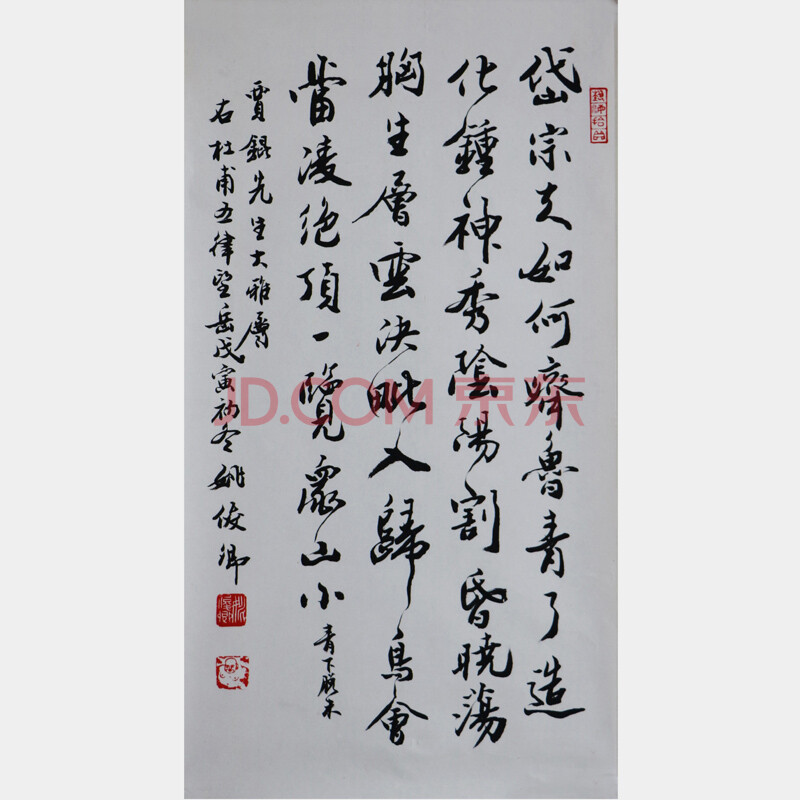 岱宗夫如何齊魯青了造
化鍾神秀陰陽割昏曉蕩
胸生層雲決眦入歸鳥會
當凌絕頂一覽眾山小 青下脱未
賈錕先生大雅屬
右杜甫五律望岳戊寅初冬姚俊卿
JD.COM 京东